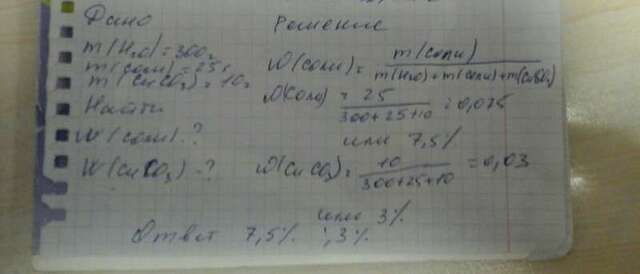 Дано
m(H₂O)=300г
m(соли)=25г
m(CuCO₃)=10г
Найти
W(соли)-?
W(CuCO₃)-?
Решение
W(соли)= m(соли) / m(H₂O)+m(соли)+m(CuCO₃)
W(соли) = 25 / 300+25+10 = 0,075
или 7,5%
W(CuCO₃)= 10 / 300+25+10 = 0,03
или 3%
Ответ 7,5% ; 3%